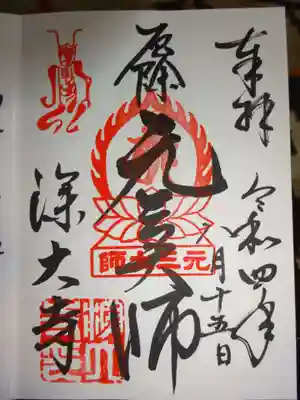 奉拝
令和四年
月十五日
厄除
元三大師
元三大師
深大寺